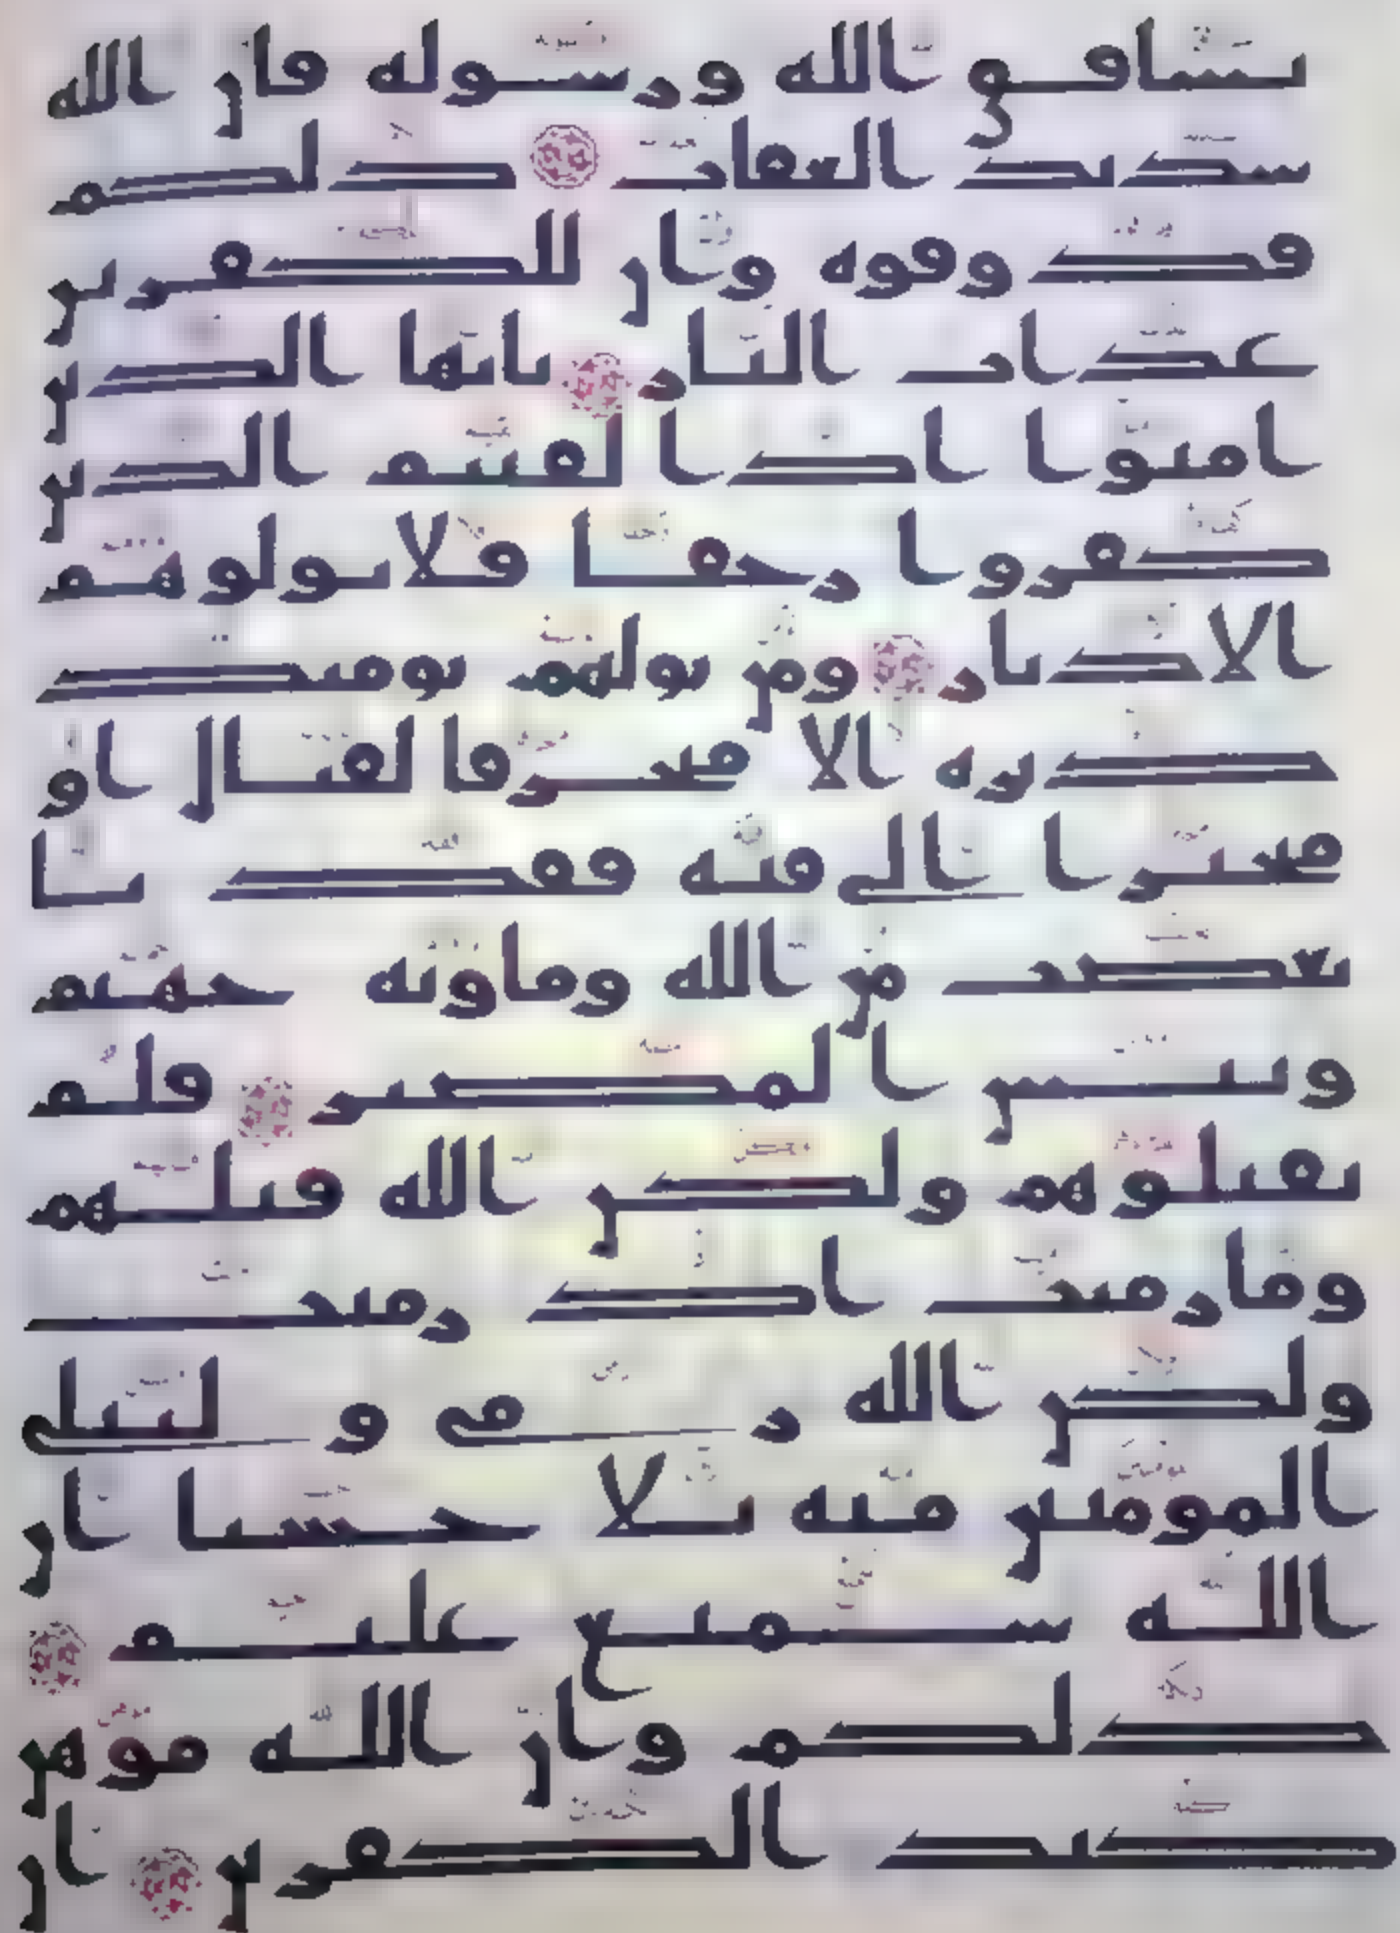 يشاقق الله ورسوله فان الله
شديد العقاب ذلكم
فذوقوه وان للكفرين
عذاب النار يايها الذين
امنوا اذا لقيتم الذين
كفروا زحفا فلا تولوهم
الادبار ومن يولهم يومئذ
دبره الا متحرفا لقتال او
متحيزا الى فئة فقد با
بغضب من الله وماويه جهنم
وبئس المصير فلم
تقتلوهم ولكن الله قتلهم
وما رميت اذ رميت
ولكن الله رمى وليبلى
المومنين منه بلا حسنا ان
الله سميع عليم
ذلكم وان الله موهن
كيد الكفرين ان